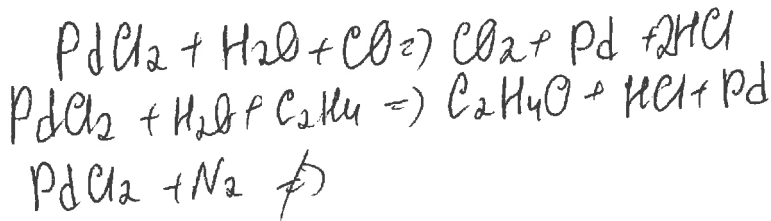 PdCl2 + H2O + CO => CO2 + Pd + 2HCl
PdCl2 + H2O + C2H4 => C2H4O + HCl + Pd
PdCl2 + N2 ≠>